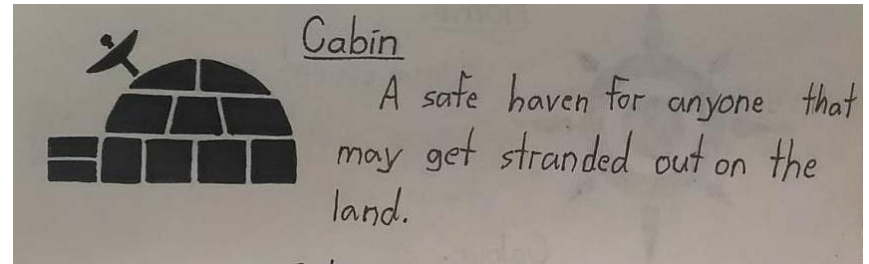 Cabin
A safe haven for anyone that
may get stranded out on the
land.